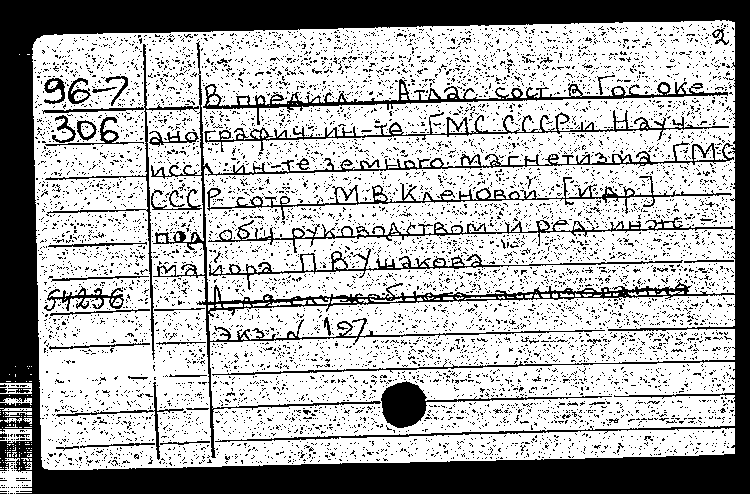 2
96-7
306
В предисл.: „Атлас сост. в Гос. оке-
анографич. ин-те ГМС СССР и Науч.-
иссл. ин-те земного магнетизма ГМС
СССР сотр... М.В. Кленовой [и др.] ...
под общ. руководством и ред. инж.-
майора П.В. Ушакова"
54236
Для служебного пользования
Экз. № 197.